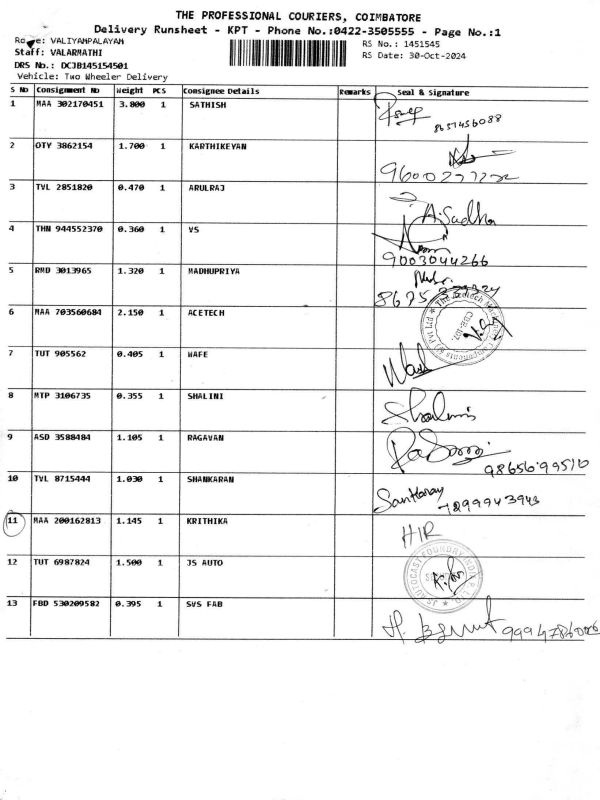 THE PROFESSIONAL COURIERS, COIMBATORE
Delivery Runsheet - KPT - Phone No.:0422-3505555 - Page No.:1
Route: VALIYAMPALAYAM
RS No.: 1451545
Staff: VALARMATHI
RS Date: 30-Oct-2024
DRS No.: DCJB145154501
Vehicle: Two Wheeler Delivery
S No Consignment No Weight PCS Consignee Details Remarks Seal & Signature
1 MAA 302170451 3.800 1 SATHISH
8637456088
2 OTY 3862154 1.700 1 KARTHIKEYAN
3 TVL 2851820 0.470 1 ARULRAJ
A. Sudha
4 THN 944552370 0.360 1 VS
9003044266
5 RMD 3013965 1.320 1 MADHUPRIYA
8675
6 MAA 703560684 2.150 1 ACETECH
7 TUT 905562 0.405 1 WAFE
8 MTP 3106735 0.355 1 SHALINI
Shalini
9 ASD 3588484 1.105 1 RAGAVAN
9865699510
10 TVL 8715444 1.030 1 SHANKARAN
7299943943
11 MAA 200162813 1.145 1 KRITHIKA
HIR
12 TUT 6987824 1.500 1 JS AUTO
JS AUTOCAST FOUNDRY INDIA
13 FBD 530209582 0.395 1 SVS FAB